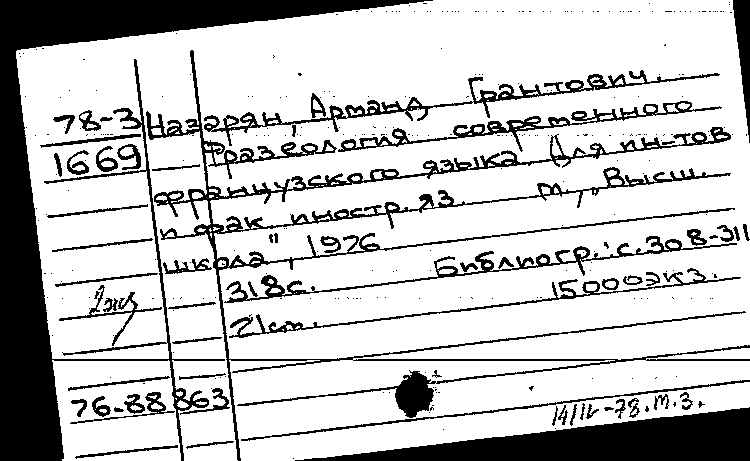 78-3 Назарян, Арманд Грантович.
1669 Фразеология современного
французского языка. Для ин-тов
и фак. иностр. яз. М., „Высш.
школа", 1976
318с. Библиогр.: с. 308-311
21см. 15000экз.
2экз
76-88863
14/IV-78. М.З.